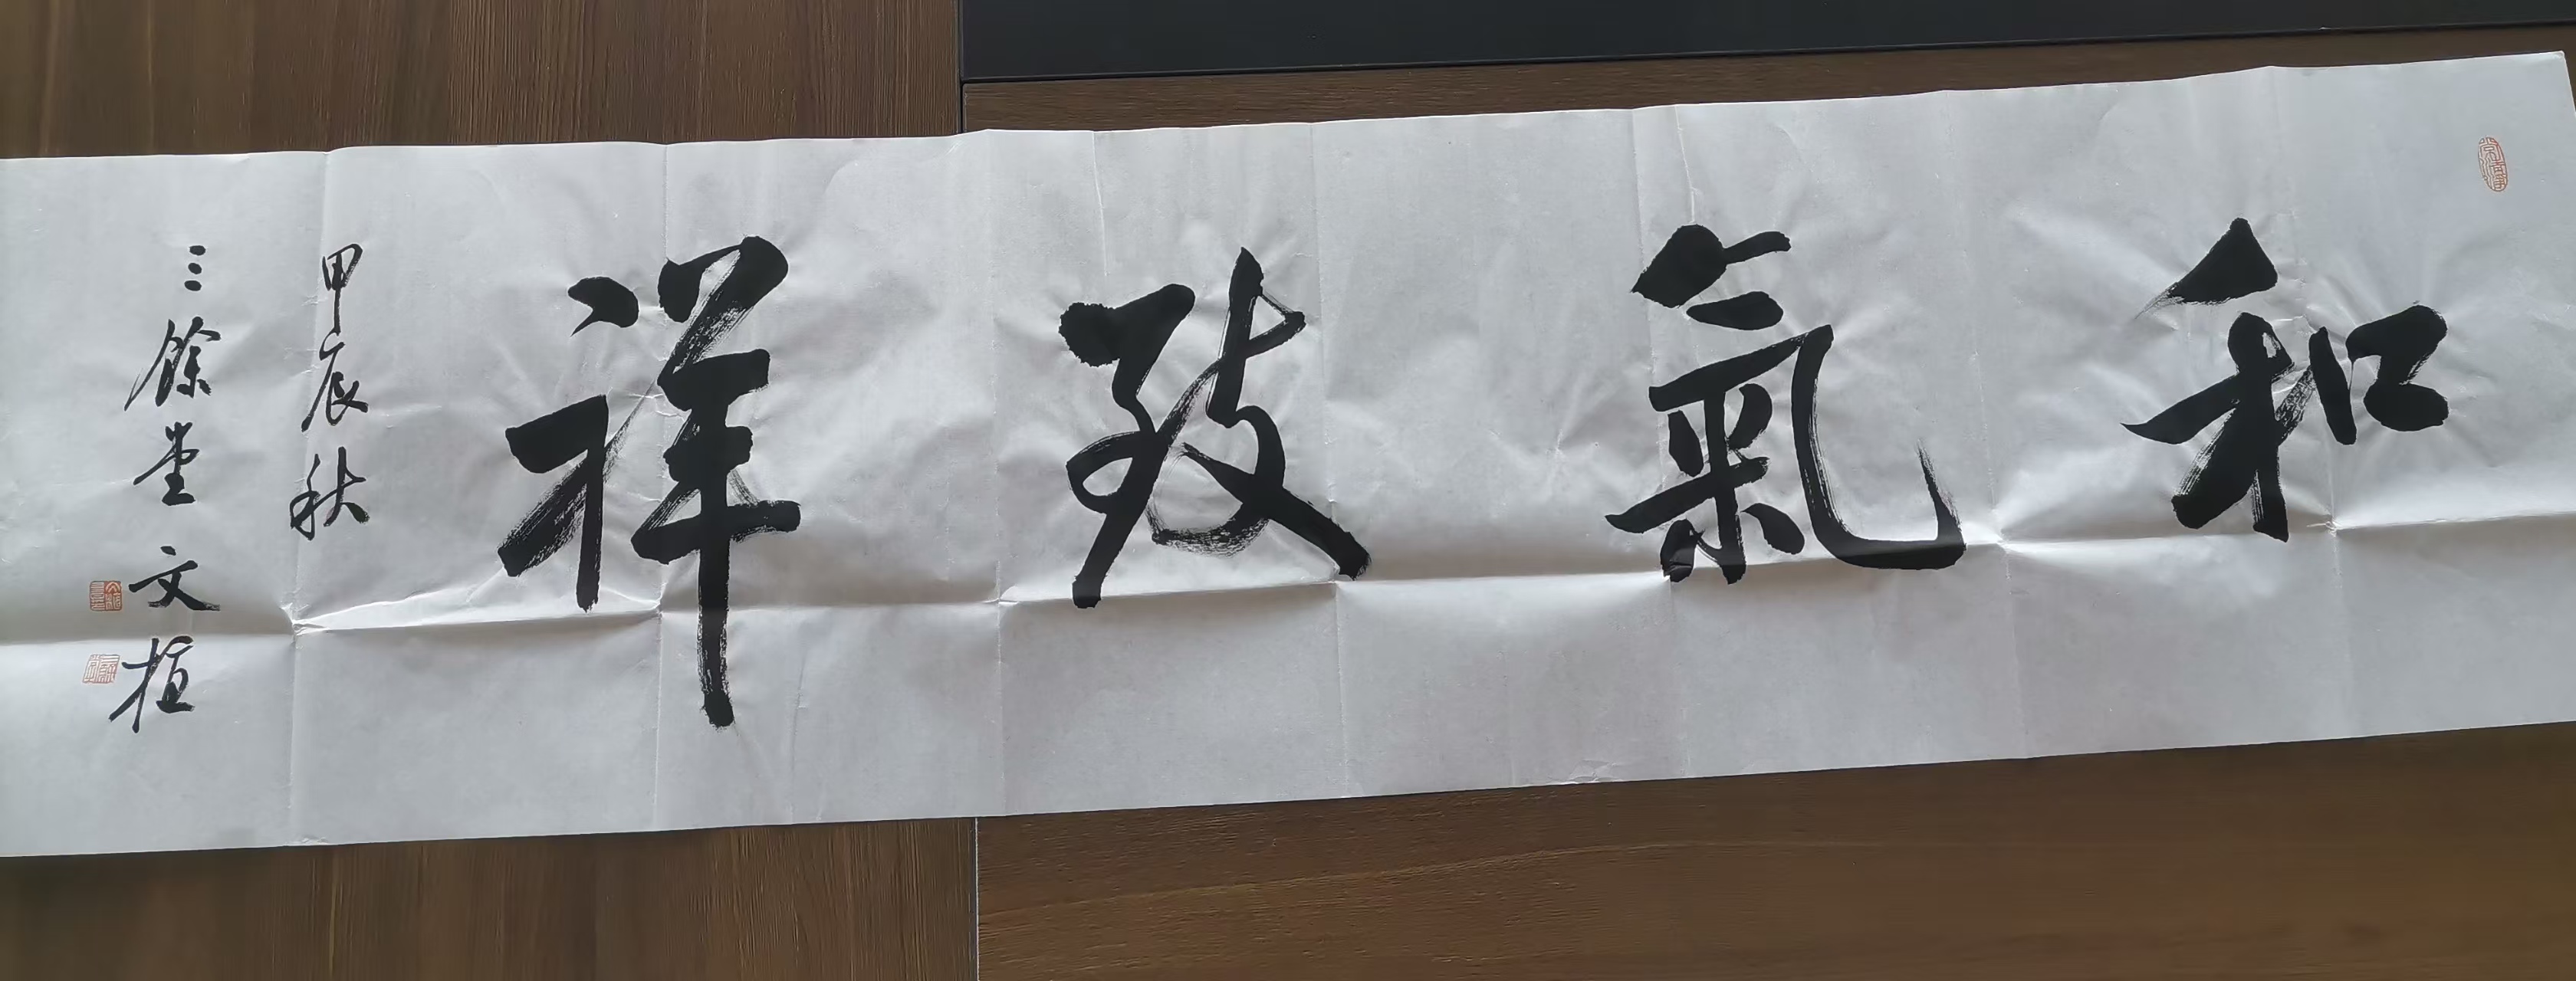 和氣致祥
甲辰秋
三餘堂文桓